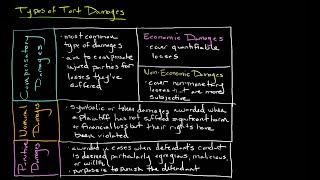 Types of Tort Damages
Compensatory
Damages
• most common
type of damages
• aim to compensate
injured parties for
losses they've
suffered
Economic Damages
• cover quantifiable
losses
Non-Economic Damages
• cover non-monetary
losses that are more
subjective
Nominal
Damages
• symbolic or token damages awarded when
a plaintiff has not suffered significant harm
or financial loss but their rights have
been violated
Punitive
Damages
• awarded in cases when defendant's conduct
is deemed particularly egregious, malicious,
or willful
• purpose is to punish the defendant